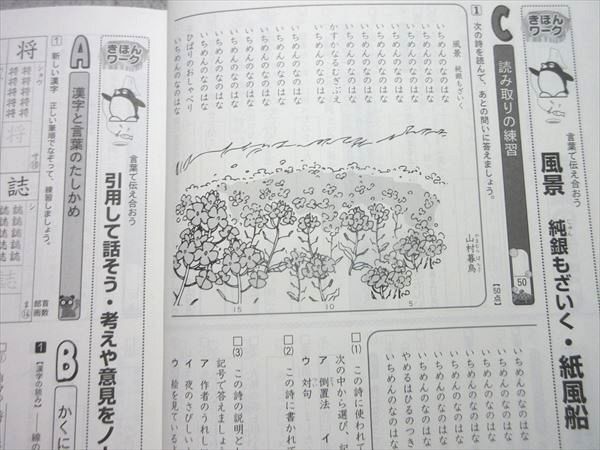 きほんワーク
言葉で伝え合おう
風景 純銀もざいく・紙風船
C 読み取りの練習
50
【50点】
1 次の詩を読んで、あとの問いに答えましょう。
風景 純銀もざいく
山村暮鳥
いちめんのなのはな
いちめんのなのはな
いちめんのなのはな
いちめんのなのはな
いちめんのなのはな
いちめんのなのはな
いちめんのなのはな
かすかなるむぎぶえ
いちめんのなのはな
いちめんのなのはな
いちめんのなのはな
いちめんのなのはな
いちめんのなのはな
いちめんのなのはな
いちめんのなのはな
いちめんのなのはな
ひばりのおしゃべり
いちめんのなのはな
5
10
15
いちめんのなのはな
いちめんのなのはな
いちめんのなのはな
いちめんのなのはな
いちめんのなのはな
いちめんのなのはな
いちめんのなのはな
やめるはひるのつき
いちめんのなのはな
(1) この詩に使われて
次の中から選び、記
ア 倒置法 イ
ウ 対句
(2) この詩に書かれて
(3) この詩の説明と
記号で答えまし
ア 作者のうれし
イ 夜のさびしい
ウ 絵を見ているよ
きほんワーク
言葉で伝え合おう
引用して話そう・考えや意見をノー
A 漢字と言葉のたしかめ
1 新しい漢字 正しい筆順でなぞって、練習しましょう。
将
ショウ
誌
シ
B かくに
1 【漢字の読み】